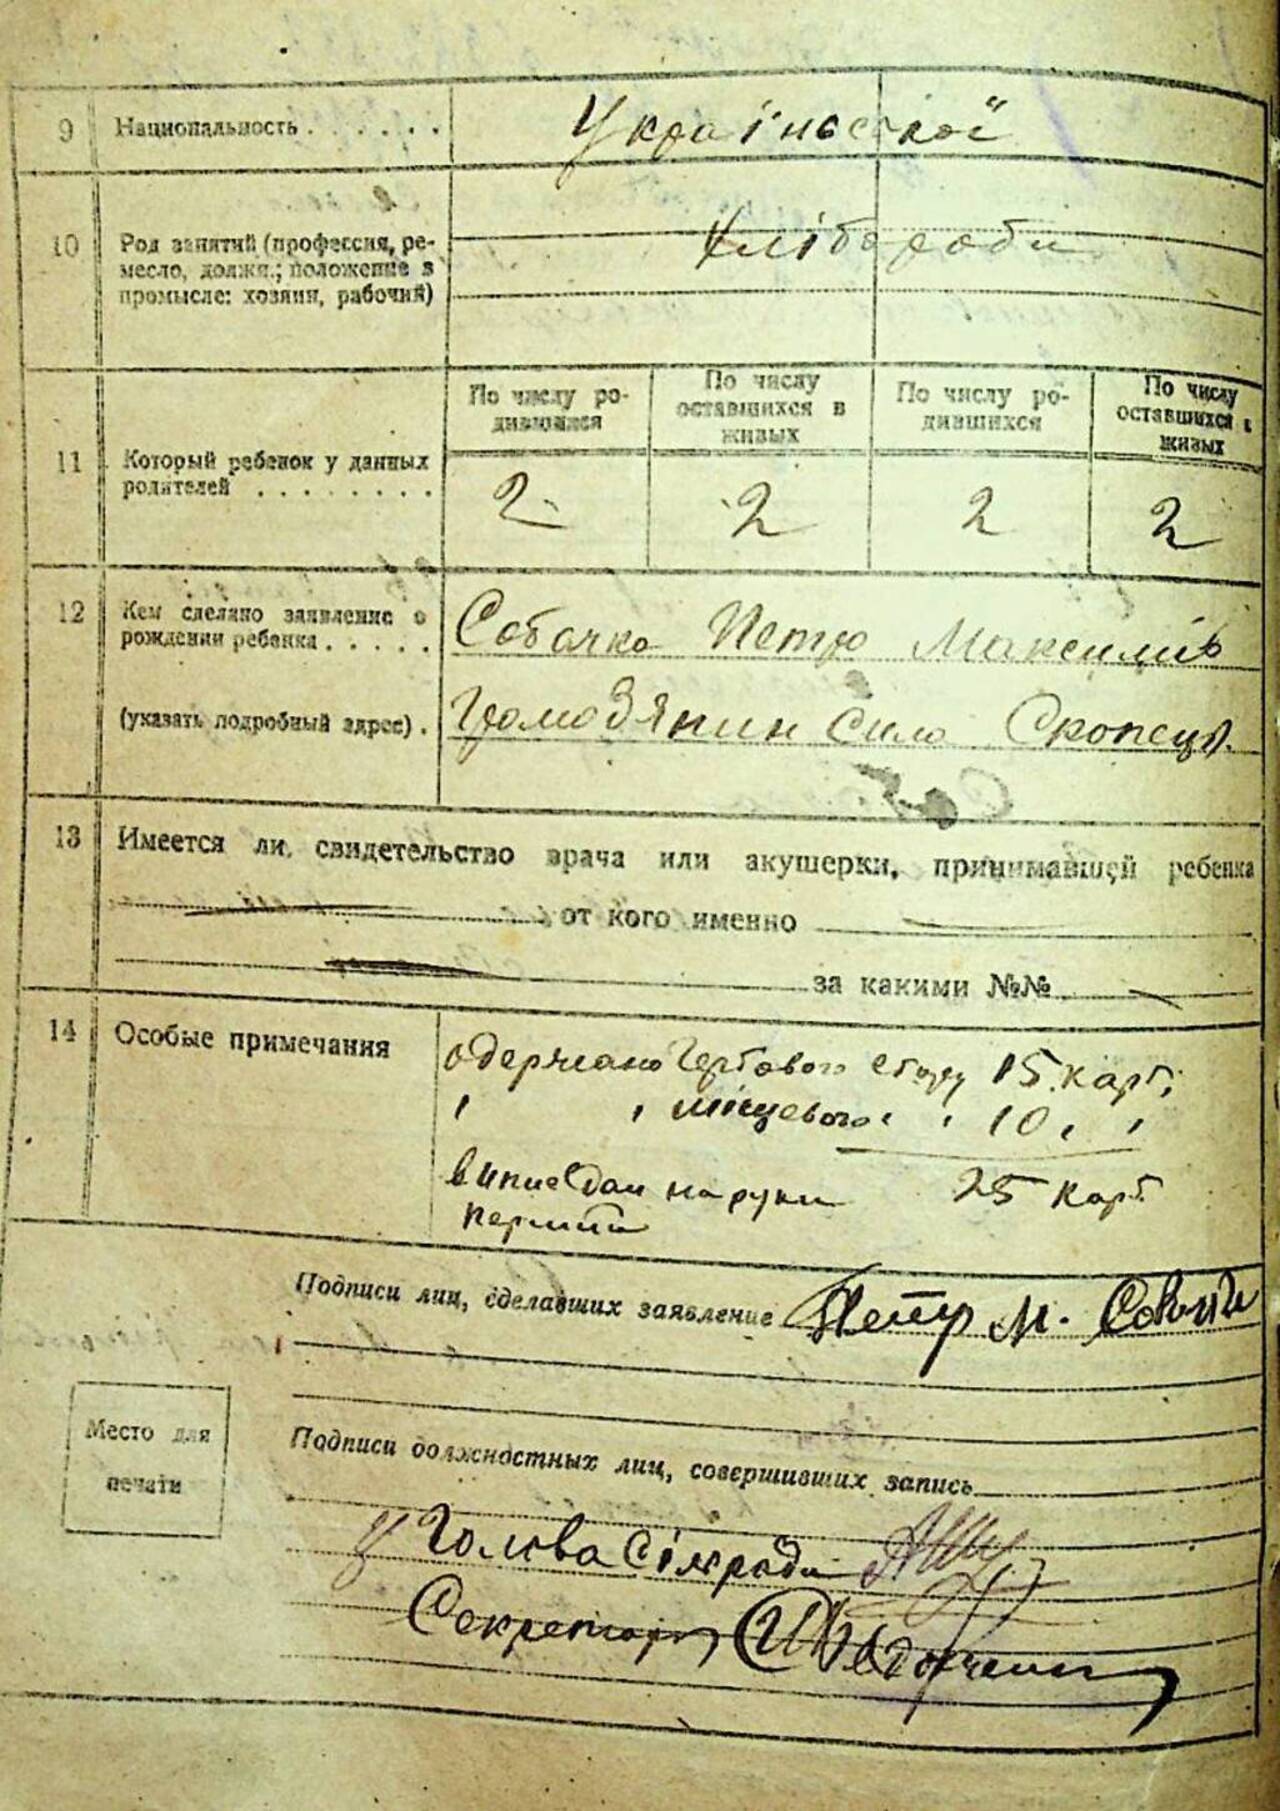 9 Национальность . . . . . . Української
10 Род занятий (профессия, ре-
месло, должн.; положение в
промысле: хозяин, рабочий)
Хлібороби
11 Который ребенок у данных
родителей . . . . . . . .
По числу ро-
дившихся
По числу
оставшихся в
живых
По числу ро-
дившихся
По числу
оставшихся в
живых
2 2 2 2
12 Кем сделано заявление о
рождении ребенка . . . . .
Собачко Петро Максимів
(указать подробный адрес) . Громодянин Село
13 Имеется ли свидетельство врача или акушерки, принимавшей ребенка
от кого именно
за какими №№
14 Особые примечания
одержано Гербового збору 15 карб.
" " місцевого " " 10 " "
25 карб.
на руки
Подписи лиц, сделавших заявление Петр М.
Подписи должностных лиц, совершивших запись
Место для
печати
Голова Сілради
Секретарь